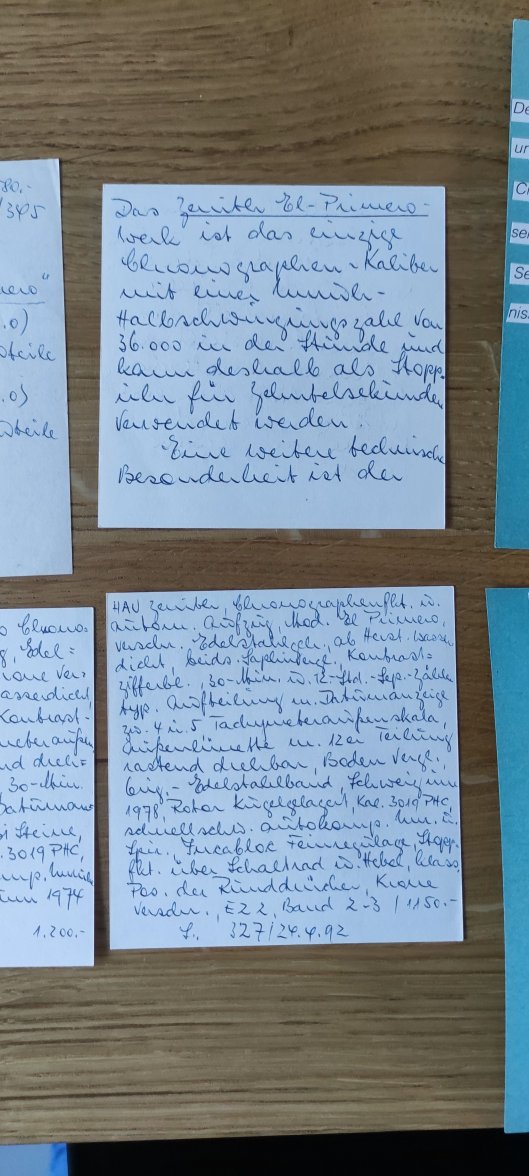 580.-
/345
mero"
.0)
steile
.0)
steile
Das Zenith El-Primero-
werk ist das einzige
Chronographen-Kaliber
mit einer Unruh-
Halbschwingungszahl von
36.000 in der Stunde und
kann deshalb als Stopp-
uhr für Zehntelsekunden
verwendet werden.
Eine weitere technische
Besonderheit ist der
De
ur
C
se
Se
nis
Chrono=
, Edel=
rone ver=
asserdicht,
Kontrast-
meteraußen
nd dreh=
30-Min.
Datuman=
Steine,
. 3019 PHC,
mp. Unruh
um 1974
1.200.-
HAU Zenith, Chronographenfkt. u.
autom. Aufzug, Mod. El Primero,
verschr. Edelstahlgeh., ab Herst. wasser
dicht, beids. Saphirbegl., Kontrast=
zifferbl., 30-Min. u. 12-Std.-Sep.-Zähler
typ. Aufteilung m. Datumanzeige
zw. 4 u. 5 Tachymeteraußenskala,
Außenlünette m. 12er Teilung
rastend drehbar, Boden vergl.,
Orig.-Edelstahlband, Schweiz um
1978, Rotor kugelgelagert, Kal. 3019 PHC,
schnellschw. autokomp. Unr. u.
Spir. Incabloc Feinregulage, Stopp-
fkt. über Schaltrad u. Hebel, klass.
Pos. der Runddrücker, Krone
verschr., EZ 2, Band 2-3 / 1150.-
327/24.4.92